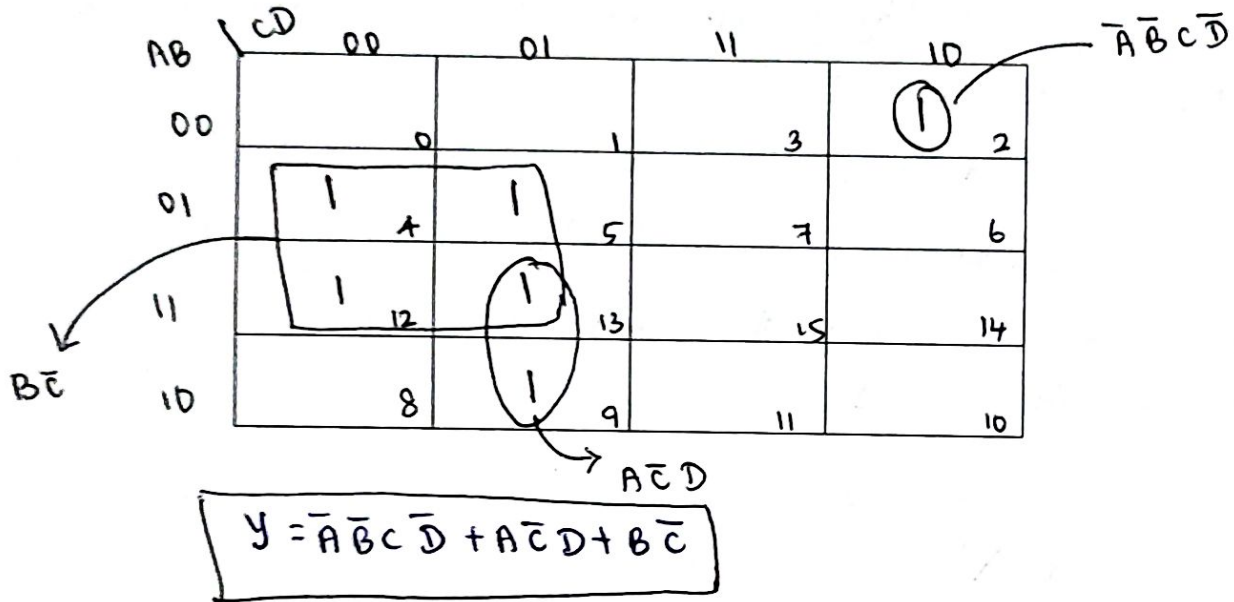 AB CD 00 01 11 10 A̅ B̅ C D̅
00 0 1 3 1 2
01 1 4 1 5 7 6
11 1 12 1 13 15 14
B C̅
10 8 1 9 11 10
A C̅ D
y = A̅ B̅ C D̅ + A C̅ D + B C̅